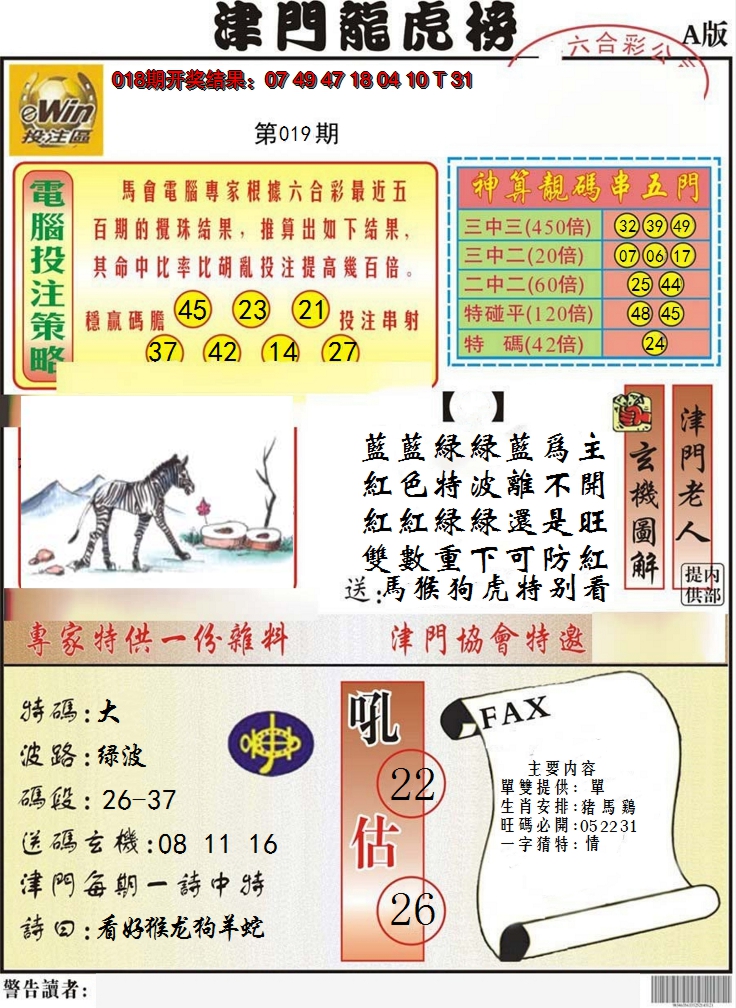 津門龍虎榜
A版
六合彩公
018期开奖结果：07 49 47 18 04 10 T 31
eWin
投注區
第019期
電腦投注策略
馬會電腦專家根據六合彩最近五
百期的攪珠结果，推算出如下结果，
其命中比率比胡亂投注提高幾百倍。
穩赢碼膽 45 23 21 投注串射
37 42 14 27
神算靚碼串五門
三中三(450倍) 32 39 49
三中二(20倍) 07 06 17
二中二(60倍) 25 44
特碰平(120倍) 48 45
特 碼(42倍) 24
【 】
藍藍緑緑藍爲主
紅色特波離不開
紅紅緑緑還是旺
雙數重下可防紅
送:馬猴狗虎特别看
玄機圖解
津門老人
内部提供
專家特供一份雜料
津門協會特邀
特碼:大
波路:绿波
碼段:26-37
送碼玄機:08 11 16
津门每期一詩中特
詩曰:看好猴龙狗羊蛇
吼 22
估 26
FAX
主要内容
單雙提供：單
生肖安排:猪馬鷄
旺碼必開:052231
一字猜特:情
警告讀者: